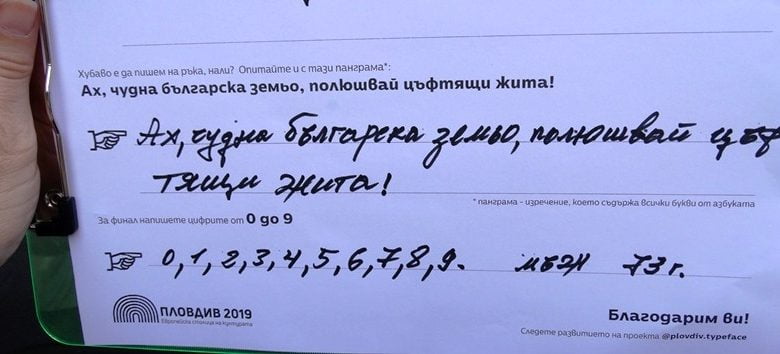 Хубаво е да пишем на ръка, нали? Опитайте и с тази панграма*:
Ах, чудна българска земьо, полюшвай цъфтящи жита!
Ах, чудна българска земьо, полюшвай цъф
тящи жита!
* панграма - изречение, което съдържа всички букви от азбуката
За финал напишете цифрите от 0 до 9
0,1,2,3,4,5,6,7,8,9. мъж 73 г.
ПЛОВДИВ 2019
Европейска столица на културата
Благодарим ви!
Следете развитието на проекта @plovdiv.typeface